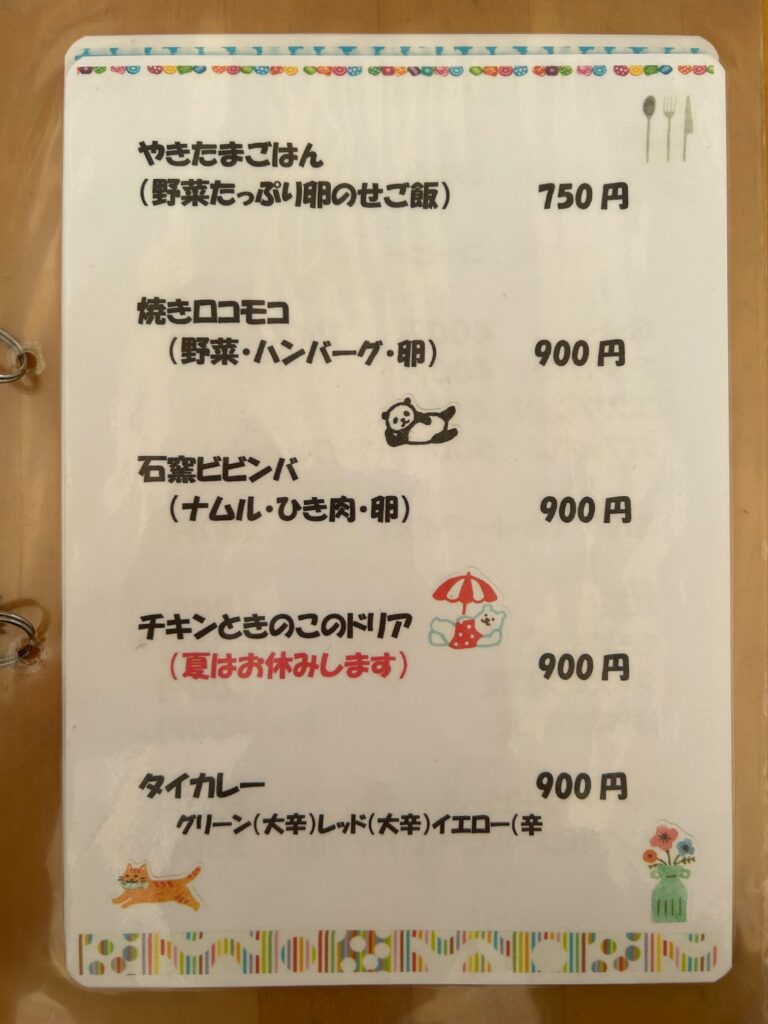 やきたまごはん
（野菜たっぷり卵のせご飯） 750円
焼きロコモコ
（野菜・ハンバーグ・卵） 900円
石窯ビビンバ
（ナムル・ひき肉・卵） 900円
チキンときのこのドリア
（夏はお休みします） 900円
タイカレー 900円
グリーン（大辛）レッド（大辛）イエロー（辛